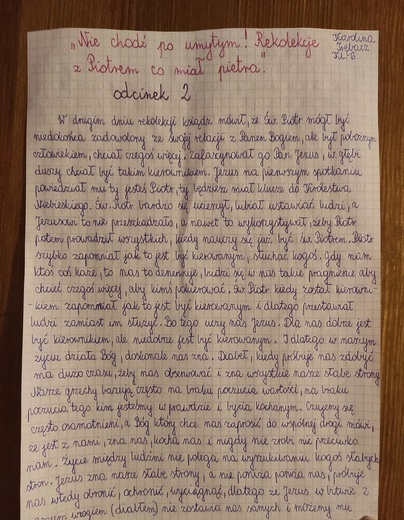 „Nie chodź po umytym! Rekolekcje
z Piotrem co miał pietra"
Karolina
Kl. 6
odcinek 2
W drugim dniu rekolekcji ksiądz mówił, że Św. Piotr mógł być
niedokońca zadowolony ze swojej relacji z Panem Bogiem, ale był pobożnym
człowiekiem, chciał czegoś więcej, zafascynował go Pan Jezus, w głębi
duszy chciał być takim kierownikiem. Jezus na pierwszym spotkaniu
powiedział mu ty jesteś Piotr, ty będziesz miał klucze do Królestwa
Niebieskiego. Św. Piotr bardzo się ucieszył, lubiał ustawiać ludzi, a
Jezusowi to nie przeszkadzało, a nawet to wykorzystywał, żeby Piotr
potem prowadził wszystkich, kiedy nauczy się już być św. Piotrem. Piotr
szybko zapomniał jak to jest być kierowanym, słuchać kogoś. Gdy nam
ktoś coś każe, to nas to denerwuje, budzi się w nas takie pragnienie aby
chcieć czegoś więcej, aby kimś pokierować. Św. Piotr kiedy został kierowni-
-kiem zapomniał jak to jest być kierowanym i dlatego przestawiał
ludzi zamiast im służyć. Bo tego uczy nas Jezus. Dla nas dobrze jest
być kierownikiem, ale niedobrze jest być kierowanym. I dlatego w naszym
życiu działa Bóg, doskonale nas zna. Diabeł, kiedy próbuje nas zdobyć
ma dużo czasu, żeby nas obserwować i zna wszystkie nasze słabe strony
Nasze grzechy bazują często na braku poczucia wartości, na braku
poczucia tego kim jesteśmy w prawdzie i bycia kochanym. Czujemy się
często osamotnieni, a Bóg który chce nas zaprosić do wspólnej drogi mówi,
że jest z nami, zna nas, kocha nas i nigdy nie zrobi nic przeciwko
nam. Życie między ludźmi nie polega na wyszukiwaniu kogoś słabych
stron. Jezus zna nasze słabe strony, a nie poniża, ponoża nas, próbuje
nas wtedy obronić, ochronić, wyciągnąć, dlatego że Jezus w bitwie z
naszym wrogiem (diabłem) nie zostawia nas samych i możemy mu